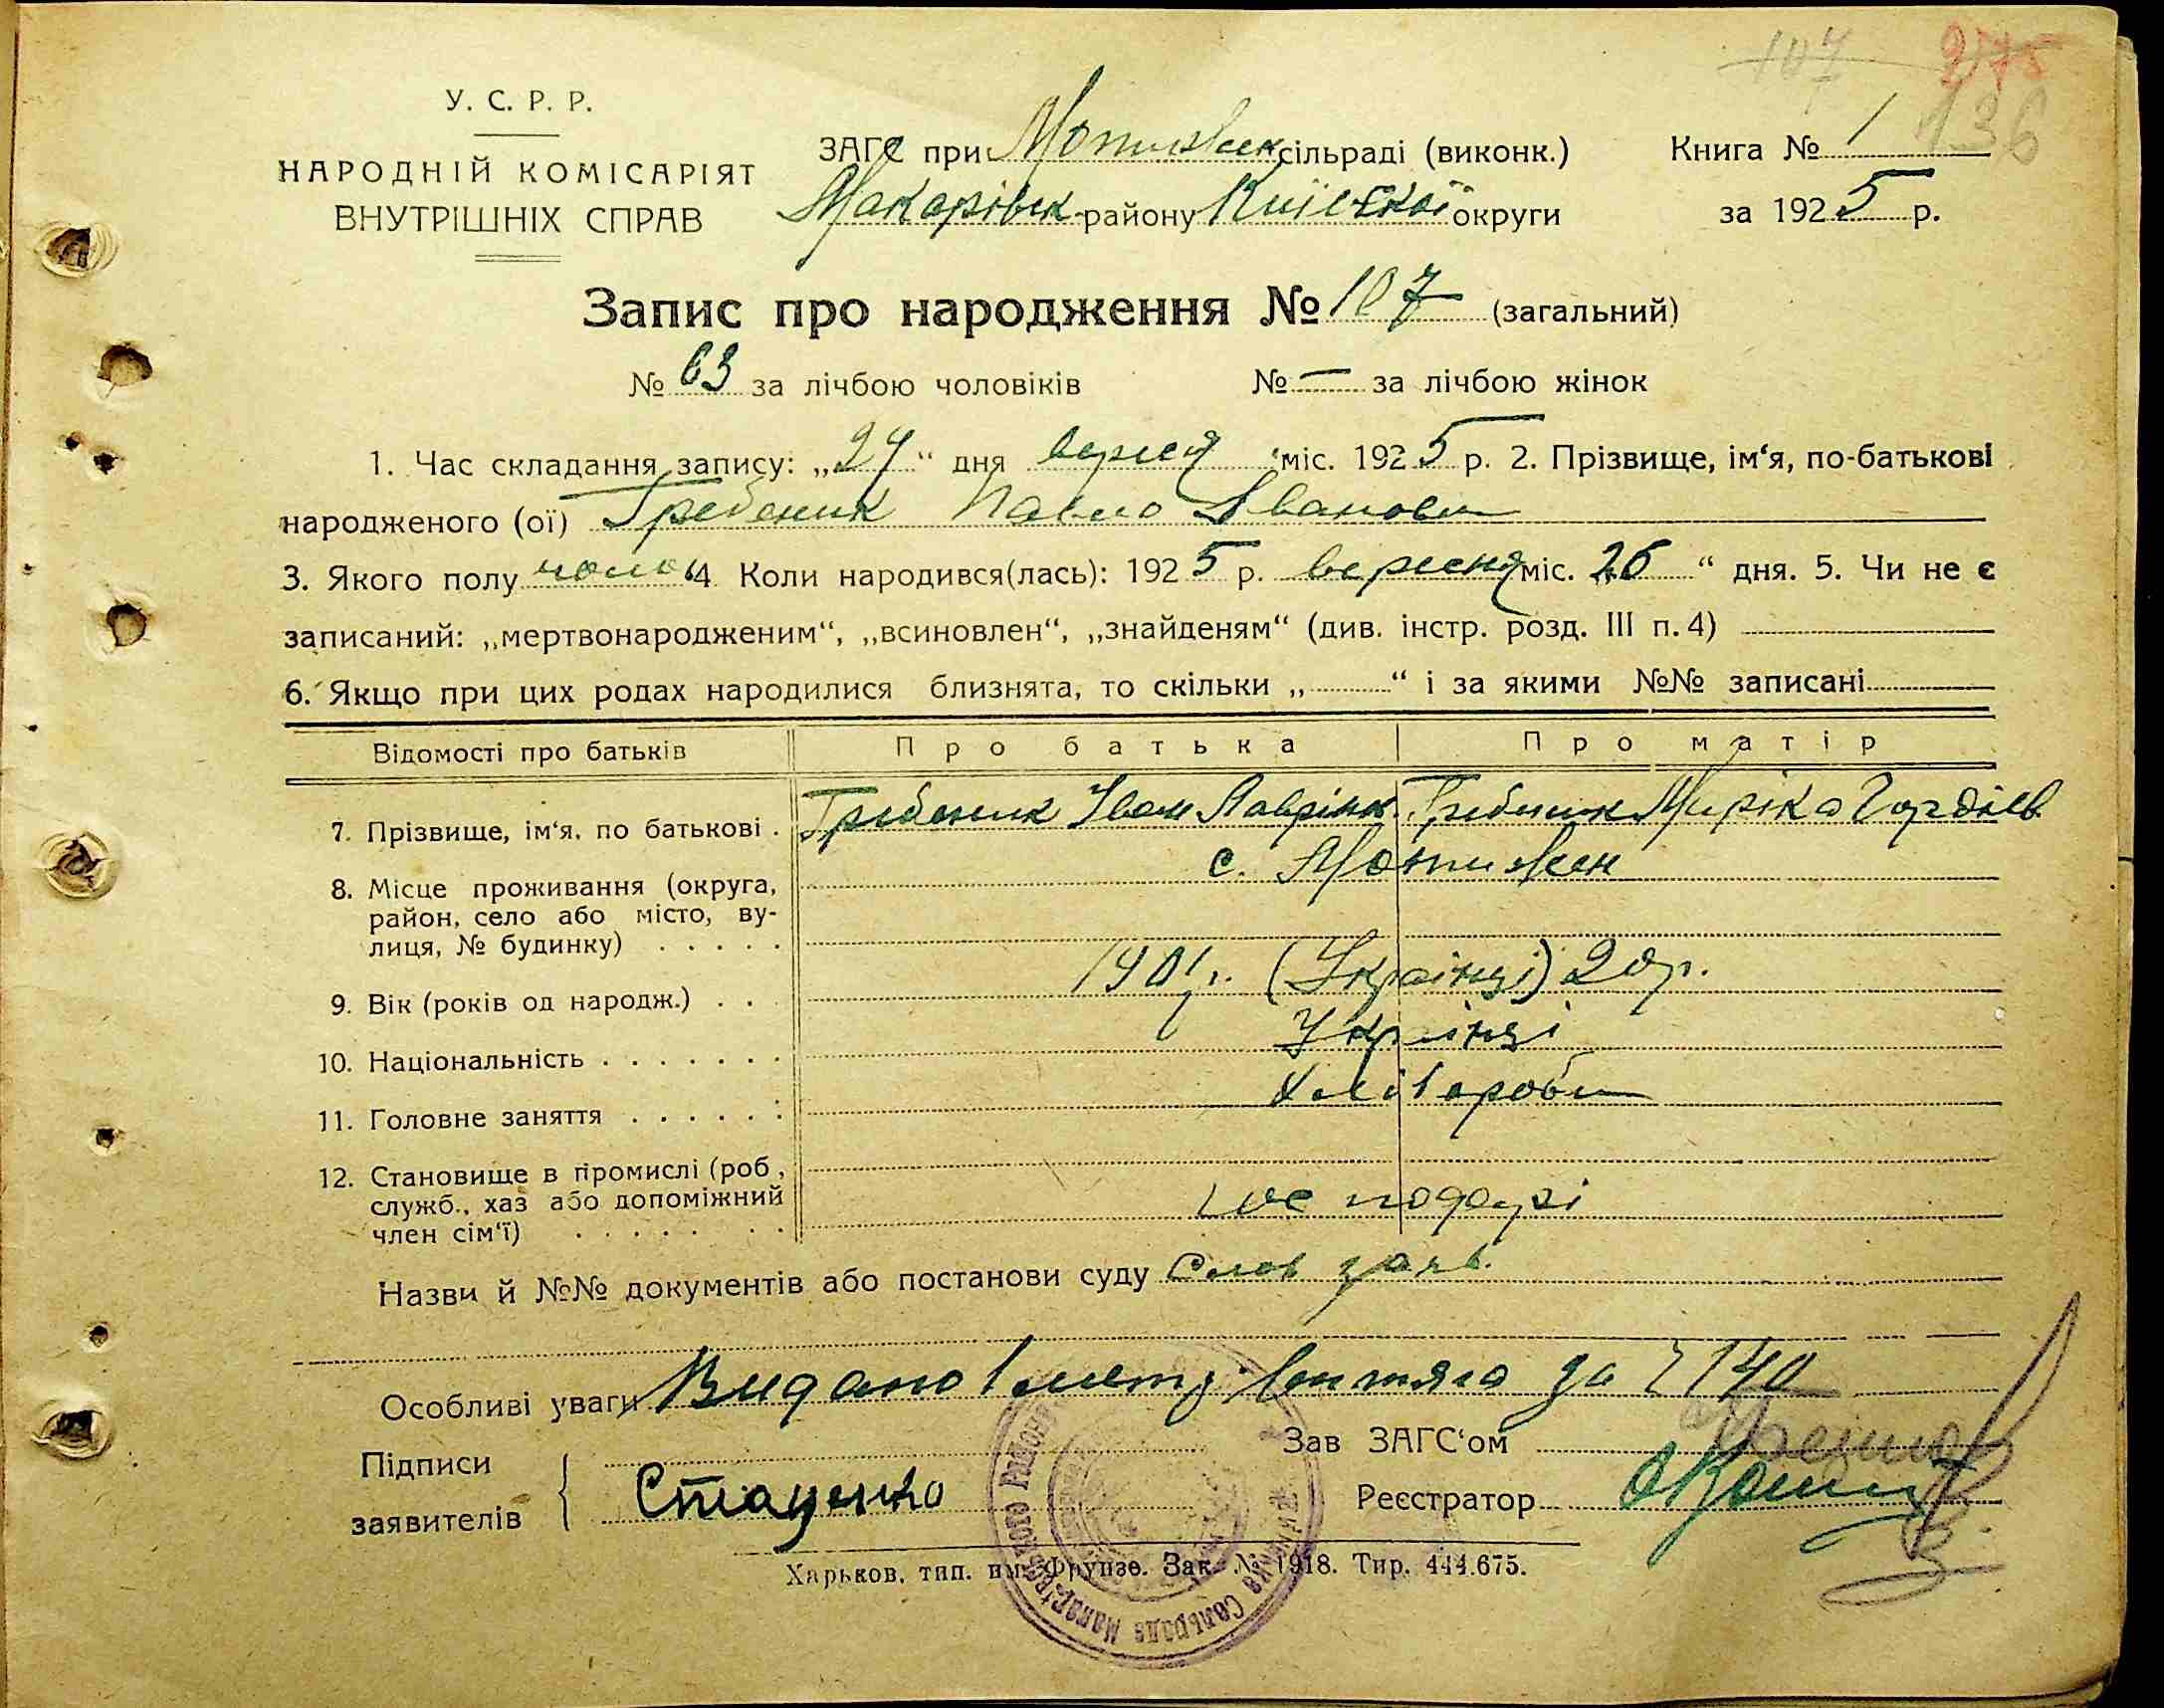 107 275
136
У. С. Р. Р.
НАРОДНІЙ КОМІСАРІЯТ
ВНУТРІШНІХ СПРАВ
ЗАГС при Мотижен сільраді (виконк.)
Макарівск району Київської округи
Книга № 1
за 1925 р.
Запис про народження № 107 (загальний)
№ 63 за лічбою чоловіків № — за лічбою жінок
1. Час складання запису: „27“ дня вересня міс. 1925 р. 2. Прізвище, ім‘я, по-батькові
народженого (ої) Гребеник Павло Іванович
3. Якого полу чолов 4 Коли народився(лась): 1925 р. вересня міс. „26“ дня. 5. Чи не є
записаний: „мертвонародженим“, „всиновлен“, „знайденям“ (див. інстр. розд. III п. 4)
6. Якщо при цих родах народилися близнята, то скільки „ “ і за якими №№ записані
Відомості про батьків Про батька Про матір
7. Прізвище, ім‘я, по батькові . Гребеник Іван Лаврінов. Гребеник Гордіев.
8. Місце проживання (округа, с. Мотижен
район, село або місто, ву-
лиця, № будинку) . . . . .
9. Вік (років од народж.) . . 1901 р. (Українці) 20 р.
10. Національність . . . . . . . Українці
11. Головне заняття . . . . . . Хлібороби
12. Становище в промислі (роб.,
служб., хаз або допоміжний господарі
член сім‘ї) . . . . . . .
Назви й №№ документів або постанови суду Слов заяв.
Особливі уваги Видано 1 метр. витяга за № 140
Підписи
заявителів Стаценко
Зав ЗАГС‘ом
Реєстратор
Харьков, тип. им. Фрунзе. Зак. № 1918. Тир. 444.675.